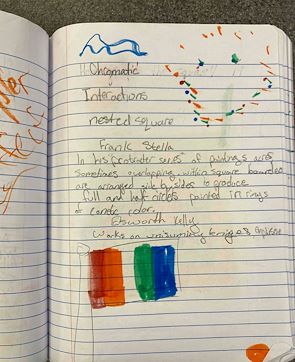 Chromatic
Interactions
nested square
Frank Stella
In his protrader series of paintings arcs,
Sometimes overlapping within square boarders
are arranged side by side to produce
full and half circles painted in rings
of color.
Elsworth Kelly
Works an unisuming